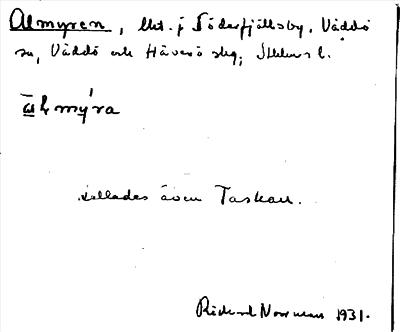 Almyren, lht. i Söderfjällsby, Väddö
sn, Väddö och Häverö skg, Sthlms l.
a̱lmý̱ra
kallades även Taskan.
Richard Norrman 1931.